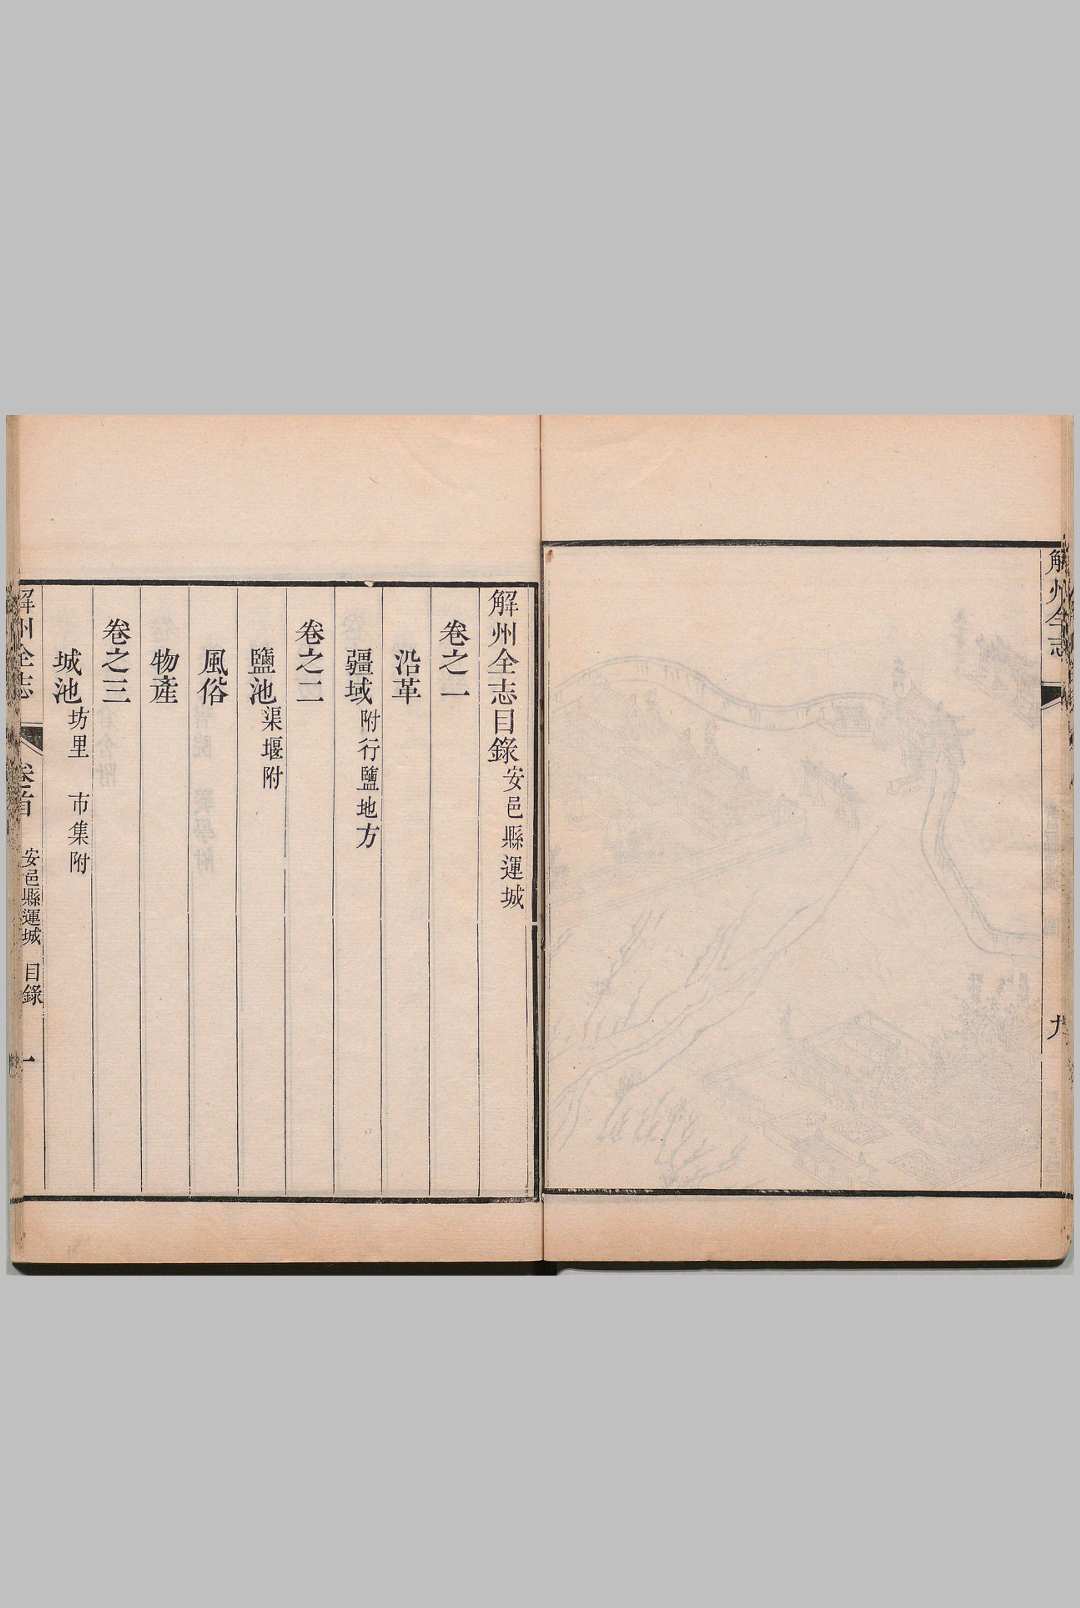 解州全志
九
解州全志目錄安邑縣運城
卷之一
沿革
疆域附行鹽地方
卷之二
鹽池渠堰附
風俗
物產
卷之三
城池坊里 市集附
解州全志 卷首 安邑縣運城 目錄 一